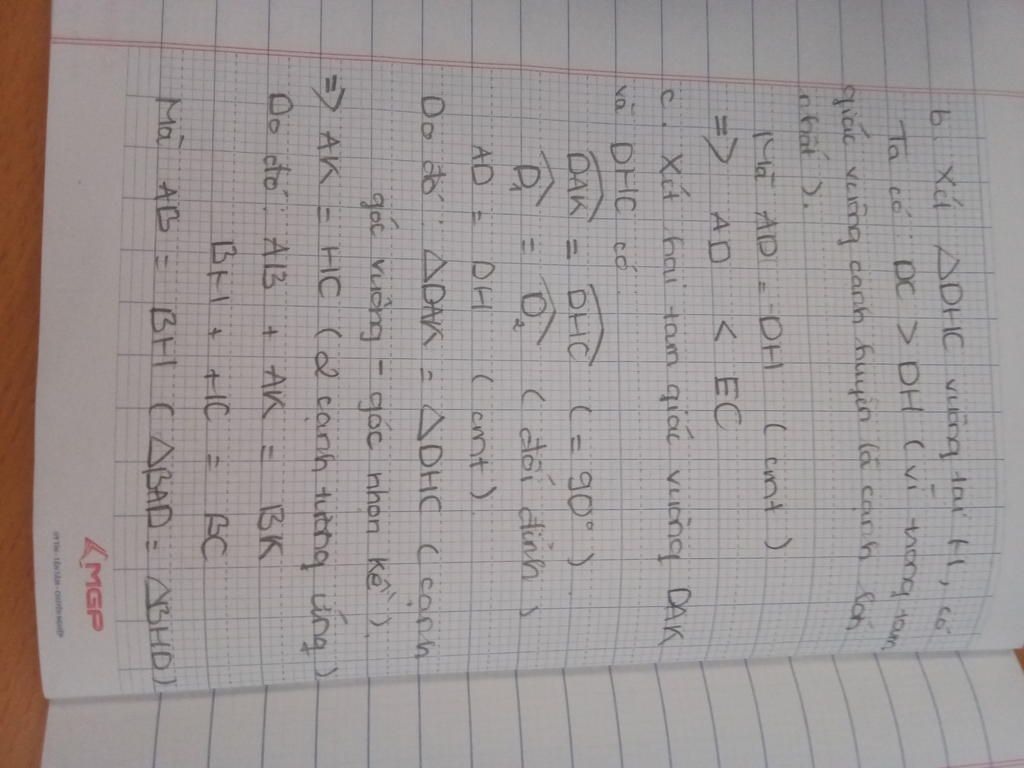 b. Xét ΔDHC vuông tại H, có
Ta có: DC > DH (vì trong tam
giác vuông cạnh huyền là cạnh lớn
nhất).
Mà AD = DH (cmt)
=> AD < EC
c. Xét hai tam giác vuông DAK
và DHC có
DAK = DHC (= 90°).
D₁ = D₂ (đối đỉnh)
AD = DH (cmt).
Do đó: ΔDAK = ΔDHC (cạnh
góc vuông - góc nhọn kề).
=> AK = HC (2 cạnh tương ứng)
Do đó: AB + AK = BK
BH + HC = BC
Mà AB = BH (ΔBAD = ΔBHD)
MGP